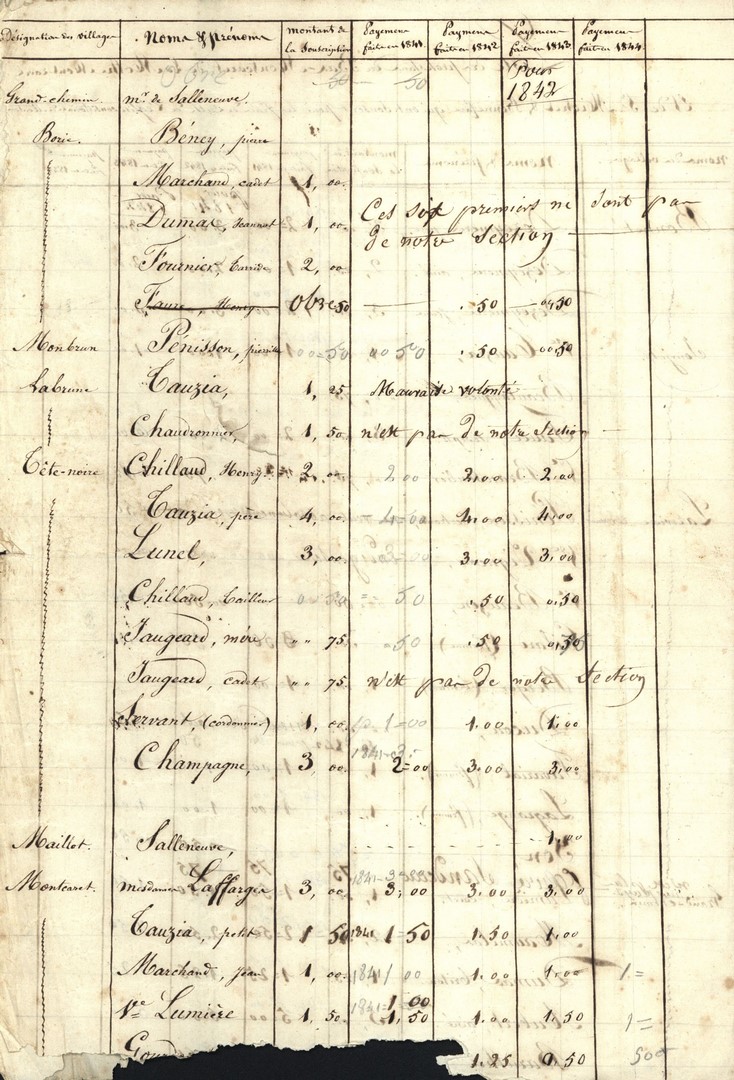 Désignation des villages Noms & prénoms montant de la Souscription Payement fait en 1841 Payement fait en 1842 Payement fait en 1843 Payement fait en 1844
50 — 50 Pour 1842
Grand-chemin mr. de Salleneuve.
Borie. Bény, pierre
Marchand, cadet 1, 00.
Dumas, Jeannot 1, 00. Ces six premiers ne sont pas
de notre Section
Fournier, 2, 00
Faure, Henry 50 — .50 — 0,50
Monbrun Pénisson, 50 00 50 .50 00 50
Labrune Tauzia, 1, 25 Mauvaise volonté
Chaudronnier, 1, 50 n'est pas de notre Section
Tête-noire Chillaud, Henry 2, 00 2 00 2,00 2,00
Tauzia, père 4, 00. 4=00 4,00 4,00
Lunel, 3, 00. 3,00 3,00
Chillaud, tailleur 0 50 = 50 .50 0,50
Jaugeard, mère " " 75 50 .50 0,50
Jaugeard, cadet " " 75. n'est pas de notre Section
Servant, (cordonnier) 1, 00. 1=00 1,00 1,00
Champagne, 3, 00. 1841-3 2=00 3,00 3,00
Maillot. Salleneuve, 1,00
Montcaret. mesdames Laffargue 3, 00. 1841-3 3, 00 3,00 3,00
Tauzia, petit 1 50 1841 1=50 1,50 1,00
Marchand, Jean 1, 00. 1841 1 00 1,00 1,00 1=
Ve Lumière 1, 50. 1841= 1 00 1, 50 1,00 1,50 1=
1,25 0 50 50